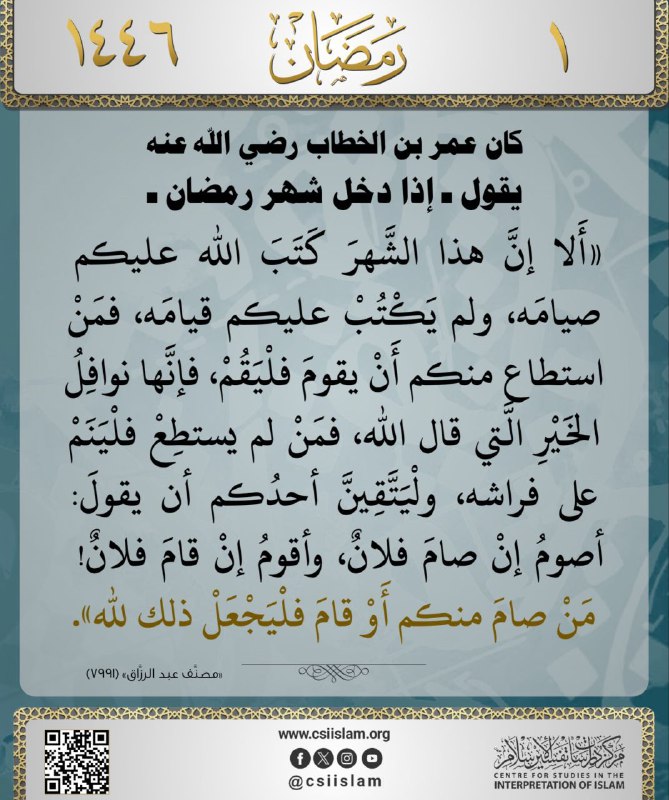 ١ رمضان ١٤٤٦
كان عمر بن الخطاب رضي الله عنه
يقول - إذا دخل شهر رمضان -
«أَلا إنَّ هذا الشَّهرَ كَتَبَ الله عليكم
صيامَه، ولم يَكْتُبْ عليكم قيامَه، فمَنْ
استطاع منكم أَنْ يقومَ فلْيَقُمْ، فإنَّها نوافِلُ
الخَيْرِ الَّتي قال الله، فمَنْ لم يستطِعْ فلْيَنَمْ
على فراشه، ولْيَتَّقِينَّ أحدُكم أن يقولَ:
أصومُ إنْ صامَ فلانٌ، وأقومُ إنْ قامَ فلانٌ!
مَنْ صامَ منكم أَوْ قامَ فلْيَجْعَلْ ذلك لله».
«مصنَّف عبد الرزَّاق» (٧٩٩١)
www.csiislam.org
@csiislam
مركز دراسات تفسير الإسلام
CENTRE FOR STUDIES IN THE
INTERPRETATION OF ISLAM